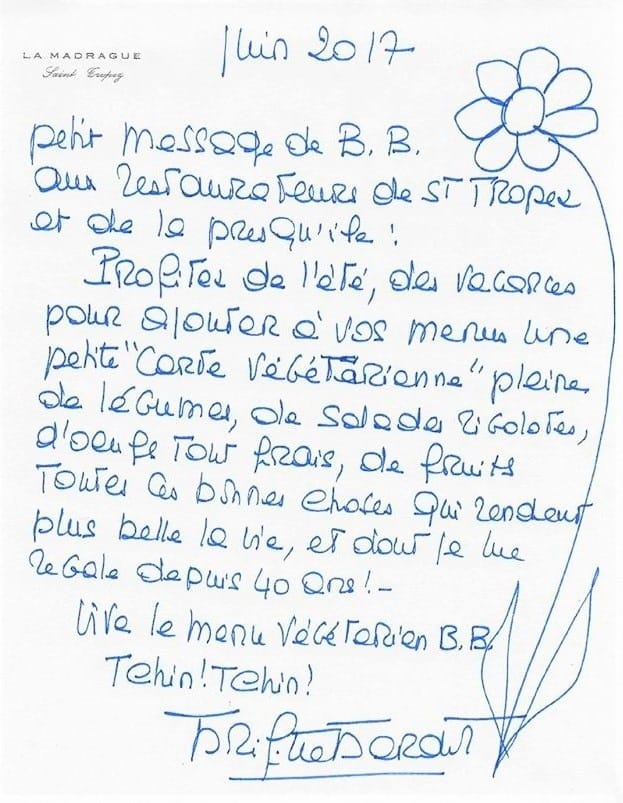 LA MADRAGUE
Saint Tropez
Juin 2017
petit message de B. B.
aux restaurateurs de ST TROPEZ
et de la presqu'île !
Profitez de l'été, des vacances
pour ajouter à vos menus une
petite "Carte végétarienne" pleine
de légumes, de salades rigolotes,
d'oeufs tout frais, de fruits
Toutes ces bonnes choses qui rendent
plus belle la vie, et dont je me
régale depuis 40 ans ! -
Vive le menu végétarien B.B.
Tchin ! Tchin !
Brigitte Bardot